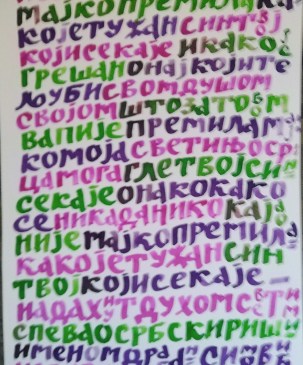 МАЈКОПРЕМИЛАКА
КОЈЕТУЖАНСИНТВОЈ
КОЈИСЕКАЈЕИКАКОЈЕ
ГРЕШАНОНАЈКОЈИТЕ
ЉУБИСВОМДУШОМ
СВОЈОМШТОЗАТОБОМ
ВАПИЈЕПРЕМИЛАМАЈ
КОМОЈАСВЕТИЊОСР
ЦАМОГАГЛЕТВОЈСИН
СЕКАЈЕОНАКОКАКО
СЕНИКАДАНИКОКАЈО
НИЈЕМАЈКОПРЕМИЛА
КАКОЈЕТУЖАНСИН
ТВОЈКОЈИСЕКАЈЕ –
НАДАХНУТДУХОМСВЕТИМ
СПЕВАОСРБСКИРИШ
ИМЕНОМ